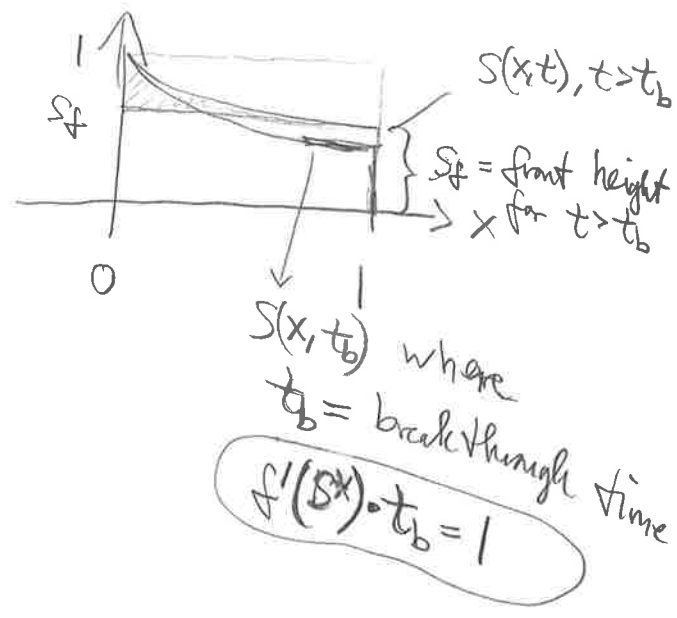 1
S(x,t), t>t_b
S_f
S_f = front height
for t>t_b
x
0
1
S(x, t_b) where
t_b = breakthrough time
f'(S*)·t_b = 1